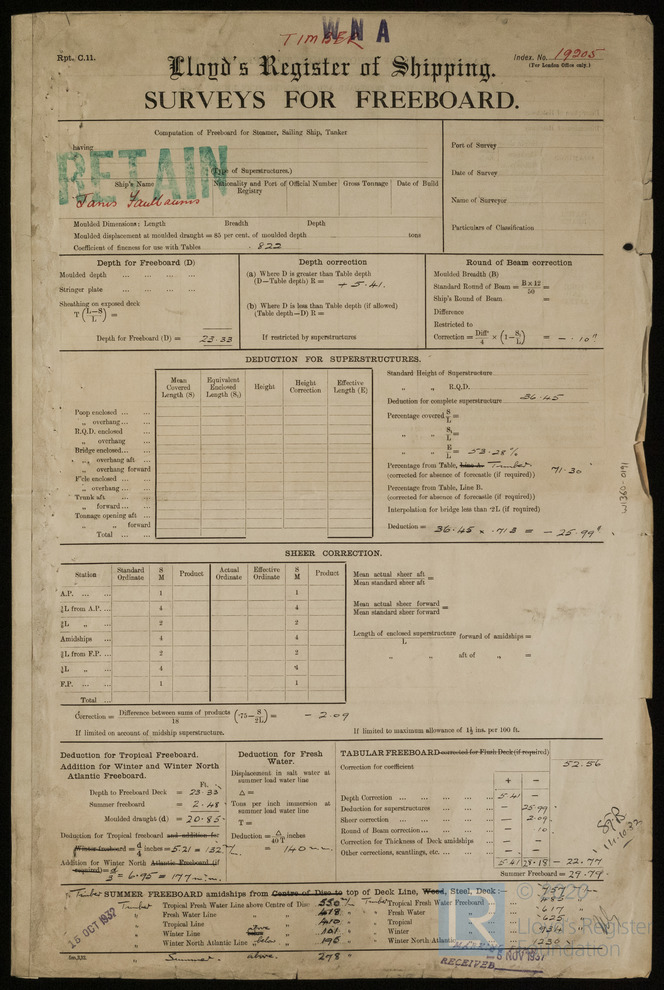 WNA
TIMBER
Rpt. C.11.
Index. No. 19205
(For London Office only.)
Lloyd's Register of Shipping.
SURVEYS FOR FREEBOARD.
Computation of Freeboard for Steamer, Sailing Ship, Tanker
having
RETAIN
(Type of Superstructures.)
Port of Survey
Date of Survey
Name of Surveyor
Particulars of Classification
Ship's Name
Nationality and Port of Registry
Official Number
Gross Tonnage
Date of Build
Moulded Dimensions: Length Breadth Depth
Moulded displacement at moulded draught = 85 per cent. of moulded depth tons
Coefficient of fineness for use with Tables .822
Depth for Freeboard (D)
Moulded depth ... ... ... ...
Stringer plate ... ... ... ...
Sheathing on exposed deck
T (L–S / L) =
Depth for Freeboard (D) = 23.33
Depth correction
(a) Where D is greater than Table depth
(D–Table depth) R = + 5.41.
(b) Where D is less than Table depth (if allowed)
(Table depth–D) R =
If restricted by superstructures
Round of Beam correction
Moulded Breadth (B)
Standard Round of Beam = B×12 / 50 =
Ship's Round of Beam =
Difference
Restricted to
Correction = Diffce / 4 × (1 – S₁ / L) = – .10"
DEDUCTION FOR SUPERSTRUCTURES.
Mean Covered Length (S)
Equivalent Enclosed Length (S₁)
Height
Height Correction
Effective Length (E)
Poop enclosed ... ...
„ overhang ... ...
R.Q.D. enclosed ...
„ overhang ...
Bridge enclosed... ...
„ overhang aft ...
„ overhang forward
F'cle enclosed ... ...
„ overhang ... ...
Trunk aft ... ...
„ forward ... ...
Tonnage opening aft ...
„ „ forward
Total ... ...
Standard Height of Superstructure
„ „ R.Q.D.
Deduction for complete superstructure 36.45
Percentage covered S / L =
„ „ S₁ / L =
„ „ E / L = 53.28%
Percentage from Table, Line A Timber 71.30
(corrected for absence of forecastle (if required))
Percentage from Table, Line B.
(corrected for absence of forecastle (if required))
Interpolation for bridge less than ·2L (if required)
Deduction = 36.45 × .713 = – 25.99"
W1360-0191
SHEER CORRECTION.
Station
Standard Ordinate
S M
Product
Actual Ordinate
Effective Ordinate
S M
Product
A.P. ... ... 1 1
⅙L from A.P. ... 4 4
⅓L „ ... 2 2
Amidships ... 4 4
⅓L from F.P. ... 2 2
⅙L „ ... 4 4
F.P. ... ... 1 1
Total ...
Mean actual sheer aft / Mean standard sheer aft =
Mean actual sheer forward / Mean standard sheer forward =
Length of enclosed superstructure / L forward of amidships =
„ „ aft of „ =
Correction = Difference between sums of products / 18 (·75– S / 2L) = – 2.09
If limited on account of midship superstructure.
If limited to maximum allowance of 1½ ins. per 100 ft.
Deduction for Tropical Freeboard.
Addition for Winter and Winter North Atlantic Freeboard.
Ft.
Depth to Freeboard Deck = 23.33
Summer freeboard = 2.48
Moulded draught (d) = 20.85
Deduction for Tropical freeboard and addition for
Winter freeboard = d / 4 inches = 5.21 = 132 m/m
Addition for Winter North Atlantic Freeboard (if
required) = d / 3 = 6.95 = 177 m/m
Deduction for Fresh Water.
Displacement in salt water at summer load water line
Δ =
Tons per inch immersion at summer load water line
T =
Deduction = Δ / 40 T inches
= 140 m/m
TABULAR FREEBOARD corrected for Flush Deck (if required) 52.56
Correction for coefficient
+ –
Depth Correction ... ... ... ... ... 5.41 –
Deduction for superstructures ... ... ... – 25.99
Sheer correction ... ... ... ... – 2.09
Round of Beam correction... ... ... ... – .10
Correction for Thickness of Deck amidships – –
Other corrections, scantlings, etc. ... ... – –
5.41 28.18 – 22.77
Summer Freeboard = 29.79
14.10.37
Timber SUMMER FREEBOARD amidships from Centre of Disc to top of Deck Line, Wood, Steel, Deck :— 757 m/m
Timber Tropical Fresh Water Line above Centre of Disc 550 m/m
„ Fresh Water Line „ 418
„ Tropical Line „ 410
„ Winter Line above „ 101
„ Winter North Atlantic Line below „ 195
Summer above. 278
Timber Tropical Fresh Water Freeboard 485
„ Fresh Water „ 617
„ Tropical „ 625
„ Winter „ 934
„ Winter North Atlantic 1230
15 OCT 1937
RECEIVED 5 NOV 1937
© 2020
Lloyd's Register
Foundation